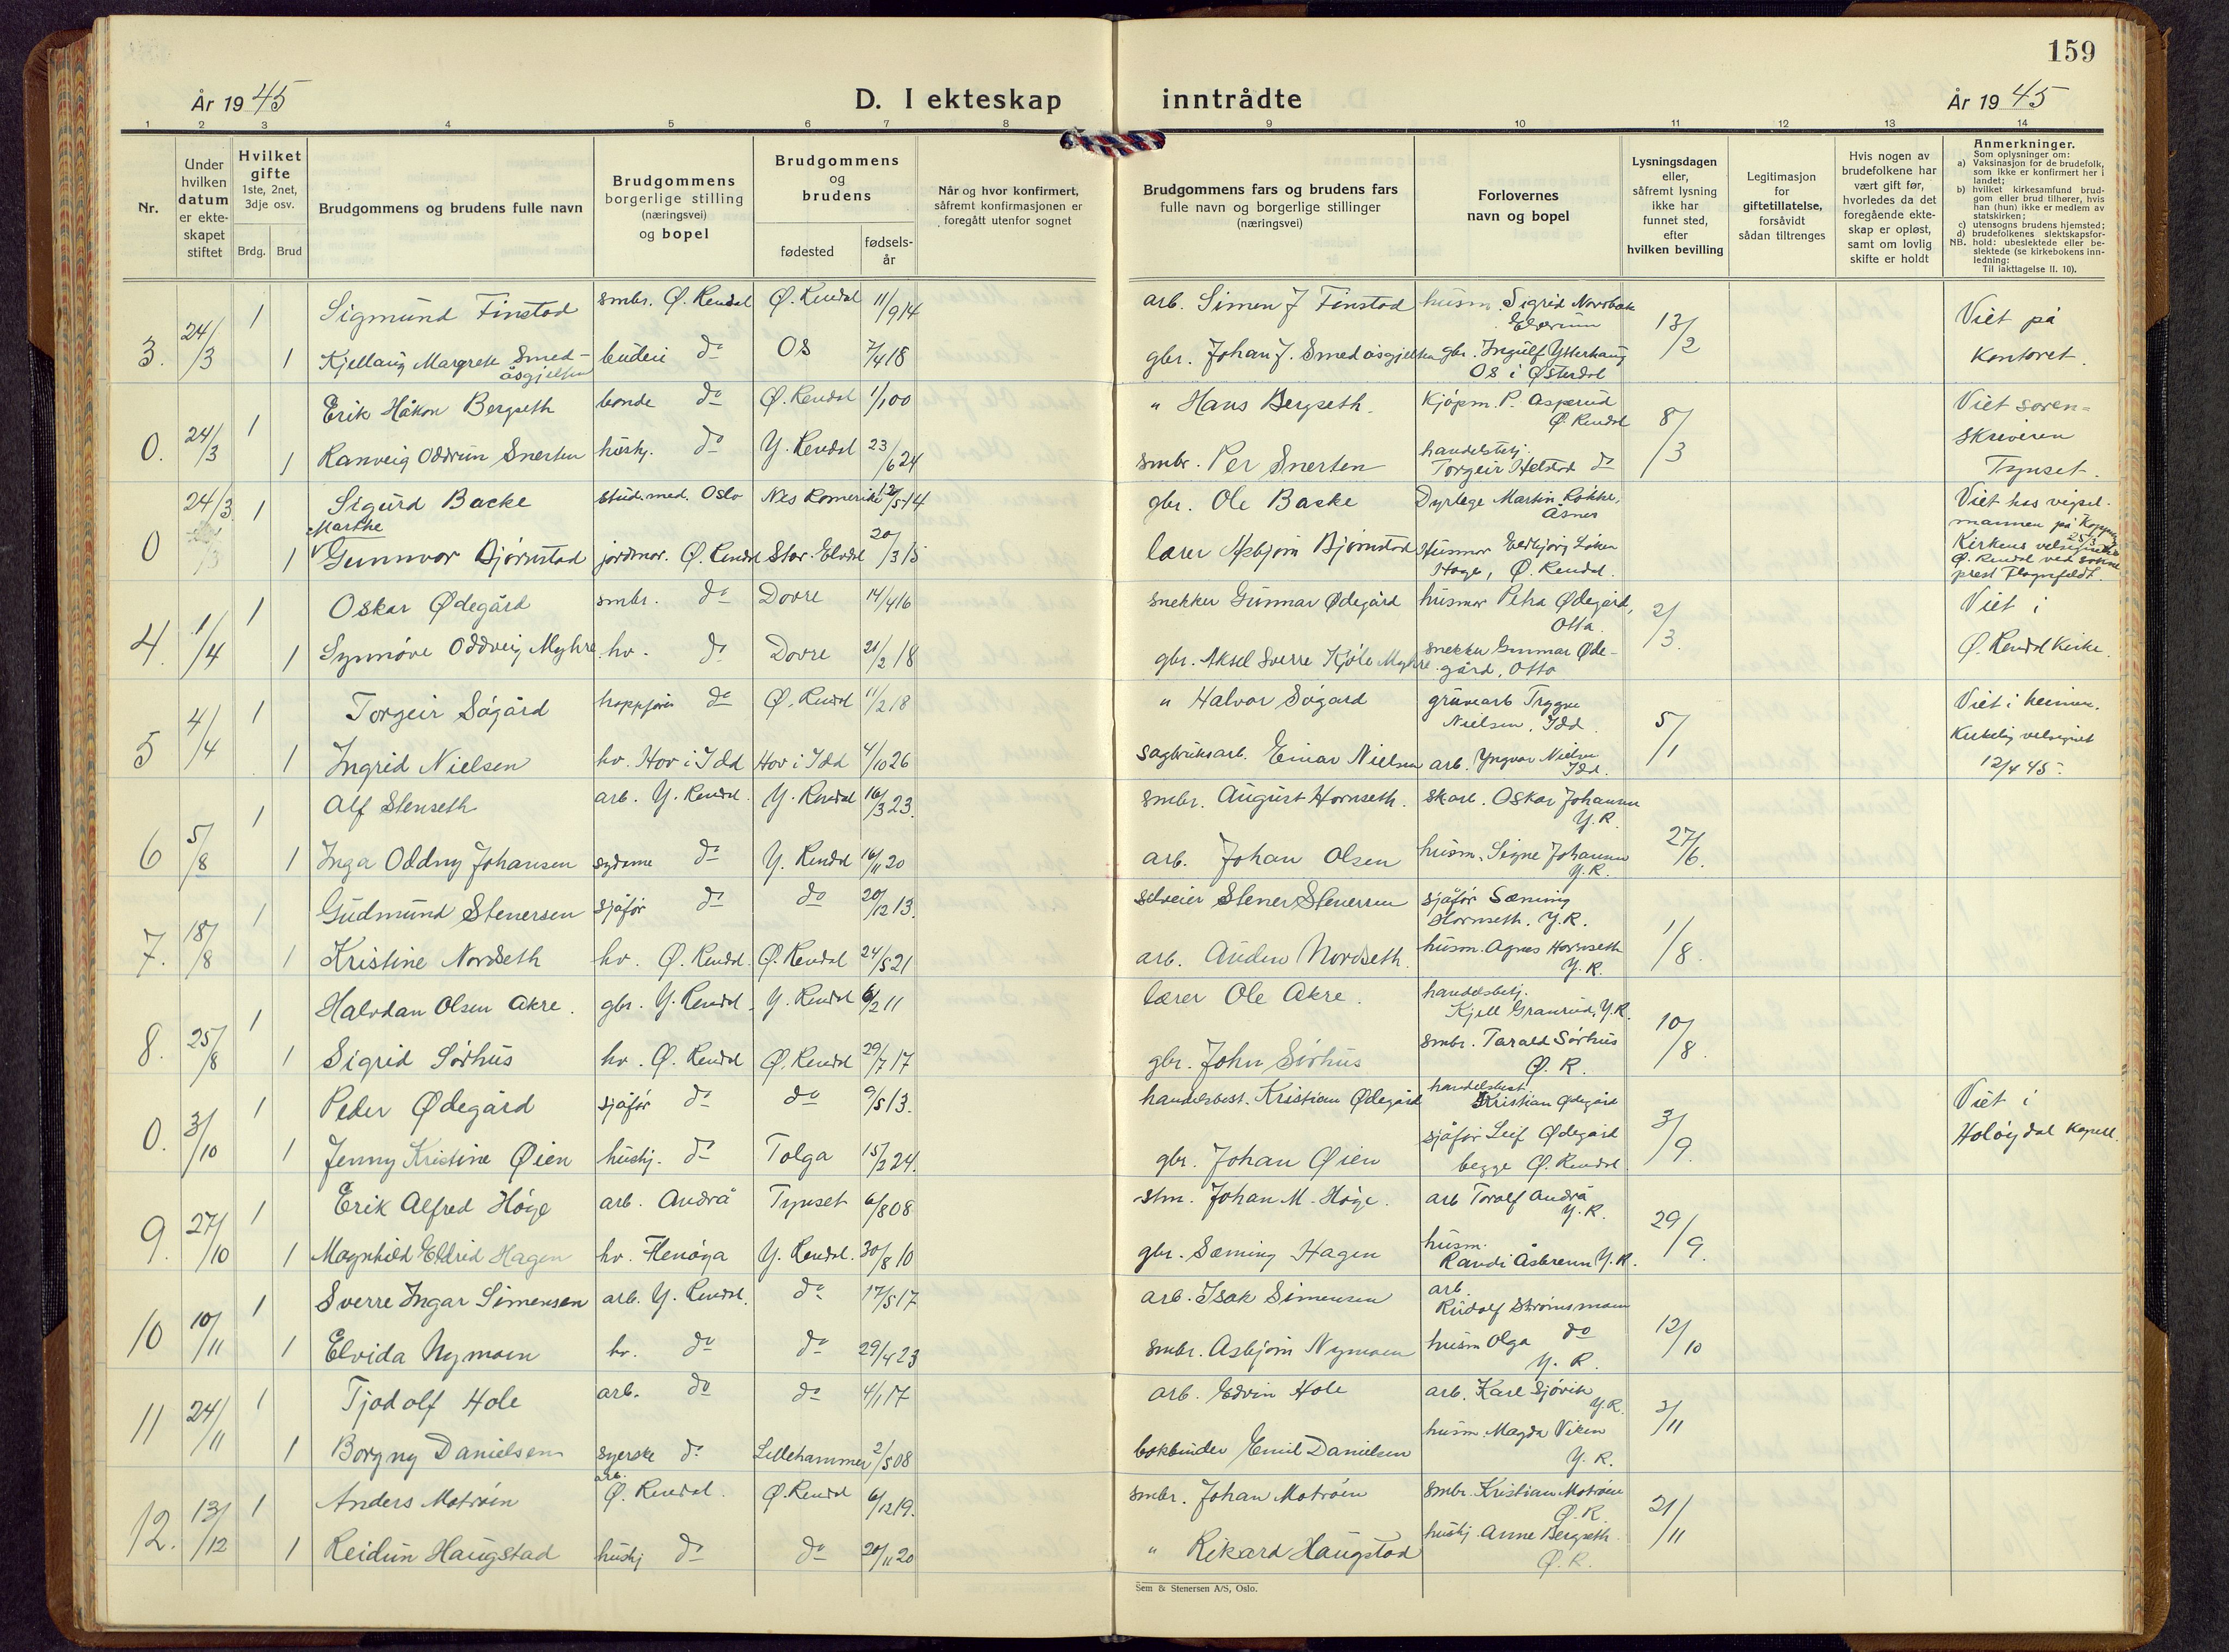 159
År 19 45
D. I ekteskap inntrådte
År 19 45
1 2 3 4 5 6 7 8 9 10 11 12 13 14
Nr.
Under hvilken datum er ekteskapet stiftet
Hvilket gifte 1ste, 2net, 3dje osv.
Brdg. Brud
Brudgommens og brudens fulle navn
Brudgommens borgerlige stilling (næringsvei) og bopel
Brudgommens og brudens
fødested
fødselsår
Når og hvor konfirmert, såfremt konfirmasjonen er foregått utenfor sognet
Brudgommens fars og brudens fars fulle navn og borgerlige stillinger (næringsvei)
Forlovernes navn og bopel
Lysningsdagen eller, såfremt lysning ikke har funnet sted, efter hvilken bevilling
Legitimasjon for giftetillatelse, forsåvidt sådan tiltrenges
Hvis nogen av brudefolkene har vært gift før, hvorledes da det foregående ekteskap er opløst, samt om lovlig skifte er holdt
Anmerkninger.
Som oplysninger om:
a) Vaksinasjon for de brudefolk, som ikke er konfirmert her i landet;
b) hvilket kirkesamfund brudgom eller brud tilhører, hvis han (hun) ikke er medlem av statskirken;
c) utensogns brudens hjemsted;
d) brudefolkenes slektskapsforhold: ubeslektede eller beslektede (se kirkebokens innledning:
NB.
Til iakttagelse II. 10).
3. 24/3 1 Sigmund Finstad smbr. Ø. Rendal Ø. Rendal 11/9 14 arb. Simen J Finstad husm. Sigrid Elverum 13/2 Viet på
1 Kjellaug Margrete Smedåsgjelten budeie do Os 7/4 18 gbr. Johan J. Smedåsgjelten gbr. Ingulf Ytterhaug Os i Østerdal kontoret.
0. 24/3 1 Erik Håkon Bergseth bonde do Ø. Rendal 1/1 00 " Hans Bergseth. Kjøpm. P. Asperud Ø. Rendal 8/3 Viet soren=
1 Ranveig Oddrun Snerten hushj. do Y. Rendal 23/6 24 smbr. Per Snerten handelsbetj. Torgeir do skriveren Tynset.
0 24/3 1 Sigurd Backe stud. med. Oslo Nes Romerike 12/5 14 gbr. Ole Backe Dyrlege Martin Løkke, Åsnes Viet hos vigsel-
mannen på Koppang
1 Marthe Gunnvor Bjørnstad jordmor. Ø. Rendal Stor-Elvdal 20/3 15 lærer Asbjørn Bjørnstad Husmor Løken Hage, Ø. Rendal. Kirkens velsignelse 25/3
Ø. Rendal ved sokneprest
4. 1/4 1 Oskar Ødegård smbr. do Dovre 14/4 16 snekker Gunnar Ødegård husmor Petra Ødegård, Otta. 2/3. Viet i
1 Synnøve Oddveig Myhre hv. do Dovre 21/2 18 gbr. Aksel Sverre Kjøle Myhre snekker Gunnar Ødegård, Otta Ø. Rendal Kirke.
5 4/4 1 Torgeir Søgård do Ø. Rendal 11/2 18 " Halvor Søgard gruvearb Trygve Nielsen, Idd. 5/1 Viet i heimen.
1 Ingrid Nielsen hv. Hov i Idd Hov i Idd 4/10 26 sagbruksarb. Einar Nielsen arb. Yngvar Nielsen Idd. Kirkelig velsignet
12/4 45.
6 5/8 1 Alf Stenseth arb. Y. Rendal. Y. Rendal 16/3 23. smbr. August Hornseth. skarb. Oskar Johansen Y.R. 27/6.
1 Inga Oddny Johansen sydame do Y. Rendal 16/11 20 arb. Johan Olsen husm. Signe Johansen Y.R.
7. 18/8 1 Gudmund Stenersen sjåfør do do 20/12 13. selveier Stener Stenersen sjåfør Sæming Hornseth. Y.R. 1/8.
1 Kristine Nordseth hv. Ø. Rendal. Ø. Rendal 24/5 21 arb. Auden Nordseth. husm. Agnes Hornseth Y.R.
8. 25/8 1 Halvdan Olsen Akre. gbr. Y. Rendal. Y. Rendal 6/2 11 lærer Ole Akre. handelsbetj. Kjell Granrud, Y.R. 10/8.
1 Sigrid Sørhus hv. Ø. Rendal Ø. Rendal 29/7 17 gbr. John Sørhus smbr. Tarald Sørhus Ø. R.
0. 3/10 1 Peder Ødegård sjåfør do do 9/5 13. handelsbest. Kristian Ødegård handelsbest. Kristian Ødegård 3/9. Viet i
1 Jenny Kristine Øien hushj. do Tolga 15/2 24. gbr. Johan Øien sjåfør Leif Ødegård begge Ø. Rendal. Holøydal kapell.
9. 27/10 1 Erik Alfred Høye arb. Andrå Tynset 6/8 08 stm. Johan M. Høye. arb Torolf Andrå Y.R. 29/9.
1 Magnhild Eldrid Hagen hv. Flenøya Y. Rendal. 30/8 10 gbr. Sæming Hagen husm. Randi Åsbrenn Y.R.
10 10/11 1 Sverre Ingar Simensen arb. Y. Rendal. do 17/5 17 arb. Isak Simensen arb. Rudolf Strømsmoen 12/10
1 Elvida Nymoen hv. do do 29/4 23 smbr. Asbjørn Nymoen husm Olga do Y. R.
11 24/11 1 Tjodolf Hole arb. do do 4/1 17 arb. Edvin Hole arb. Karl Sjøvik Y.R. 3/11
1 Borgny Danielsen syerske do Lillehammer 2/5 08 bokbinder Emil Danielsen husm. Magda Viken Y. R.
12. 13/12 1 Anders Motrøen arb. Ø. Rendal. Ø. Rendal 6/12 19. smbr. Johan Motrøen smbr. Kristian Motrøen Ø. R. 21/11
1 Reidun Haugstad hushj do do 20/11 20 " Rikard Haugstad hushj. Anne Bergseth. Ø. R.
Sem & Stenersen A/S, Oslo.